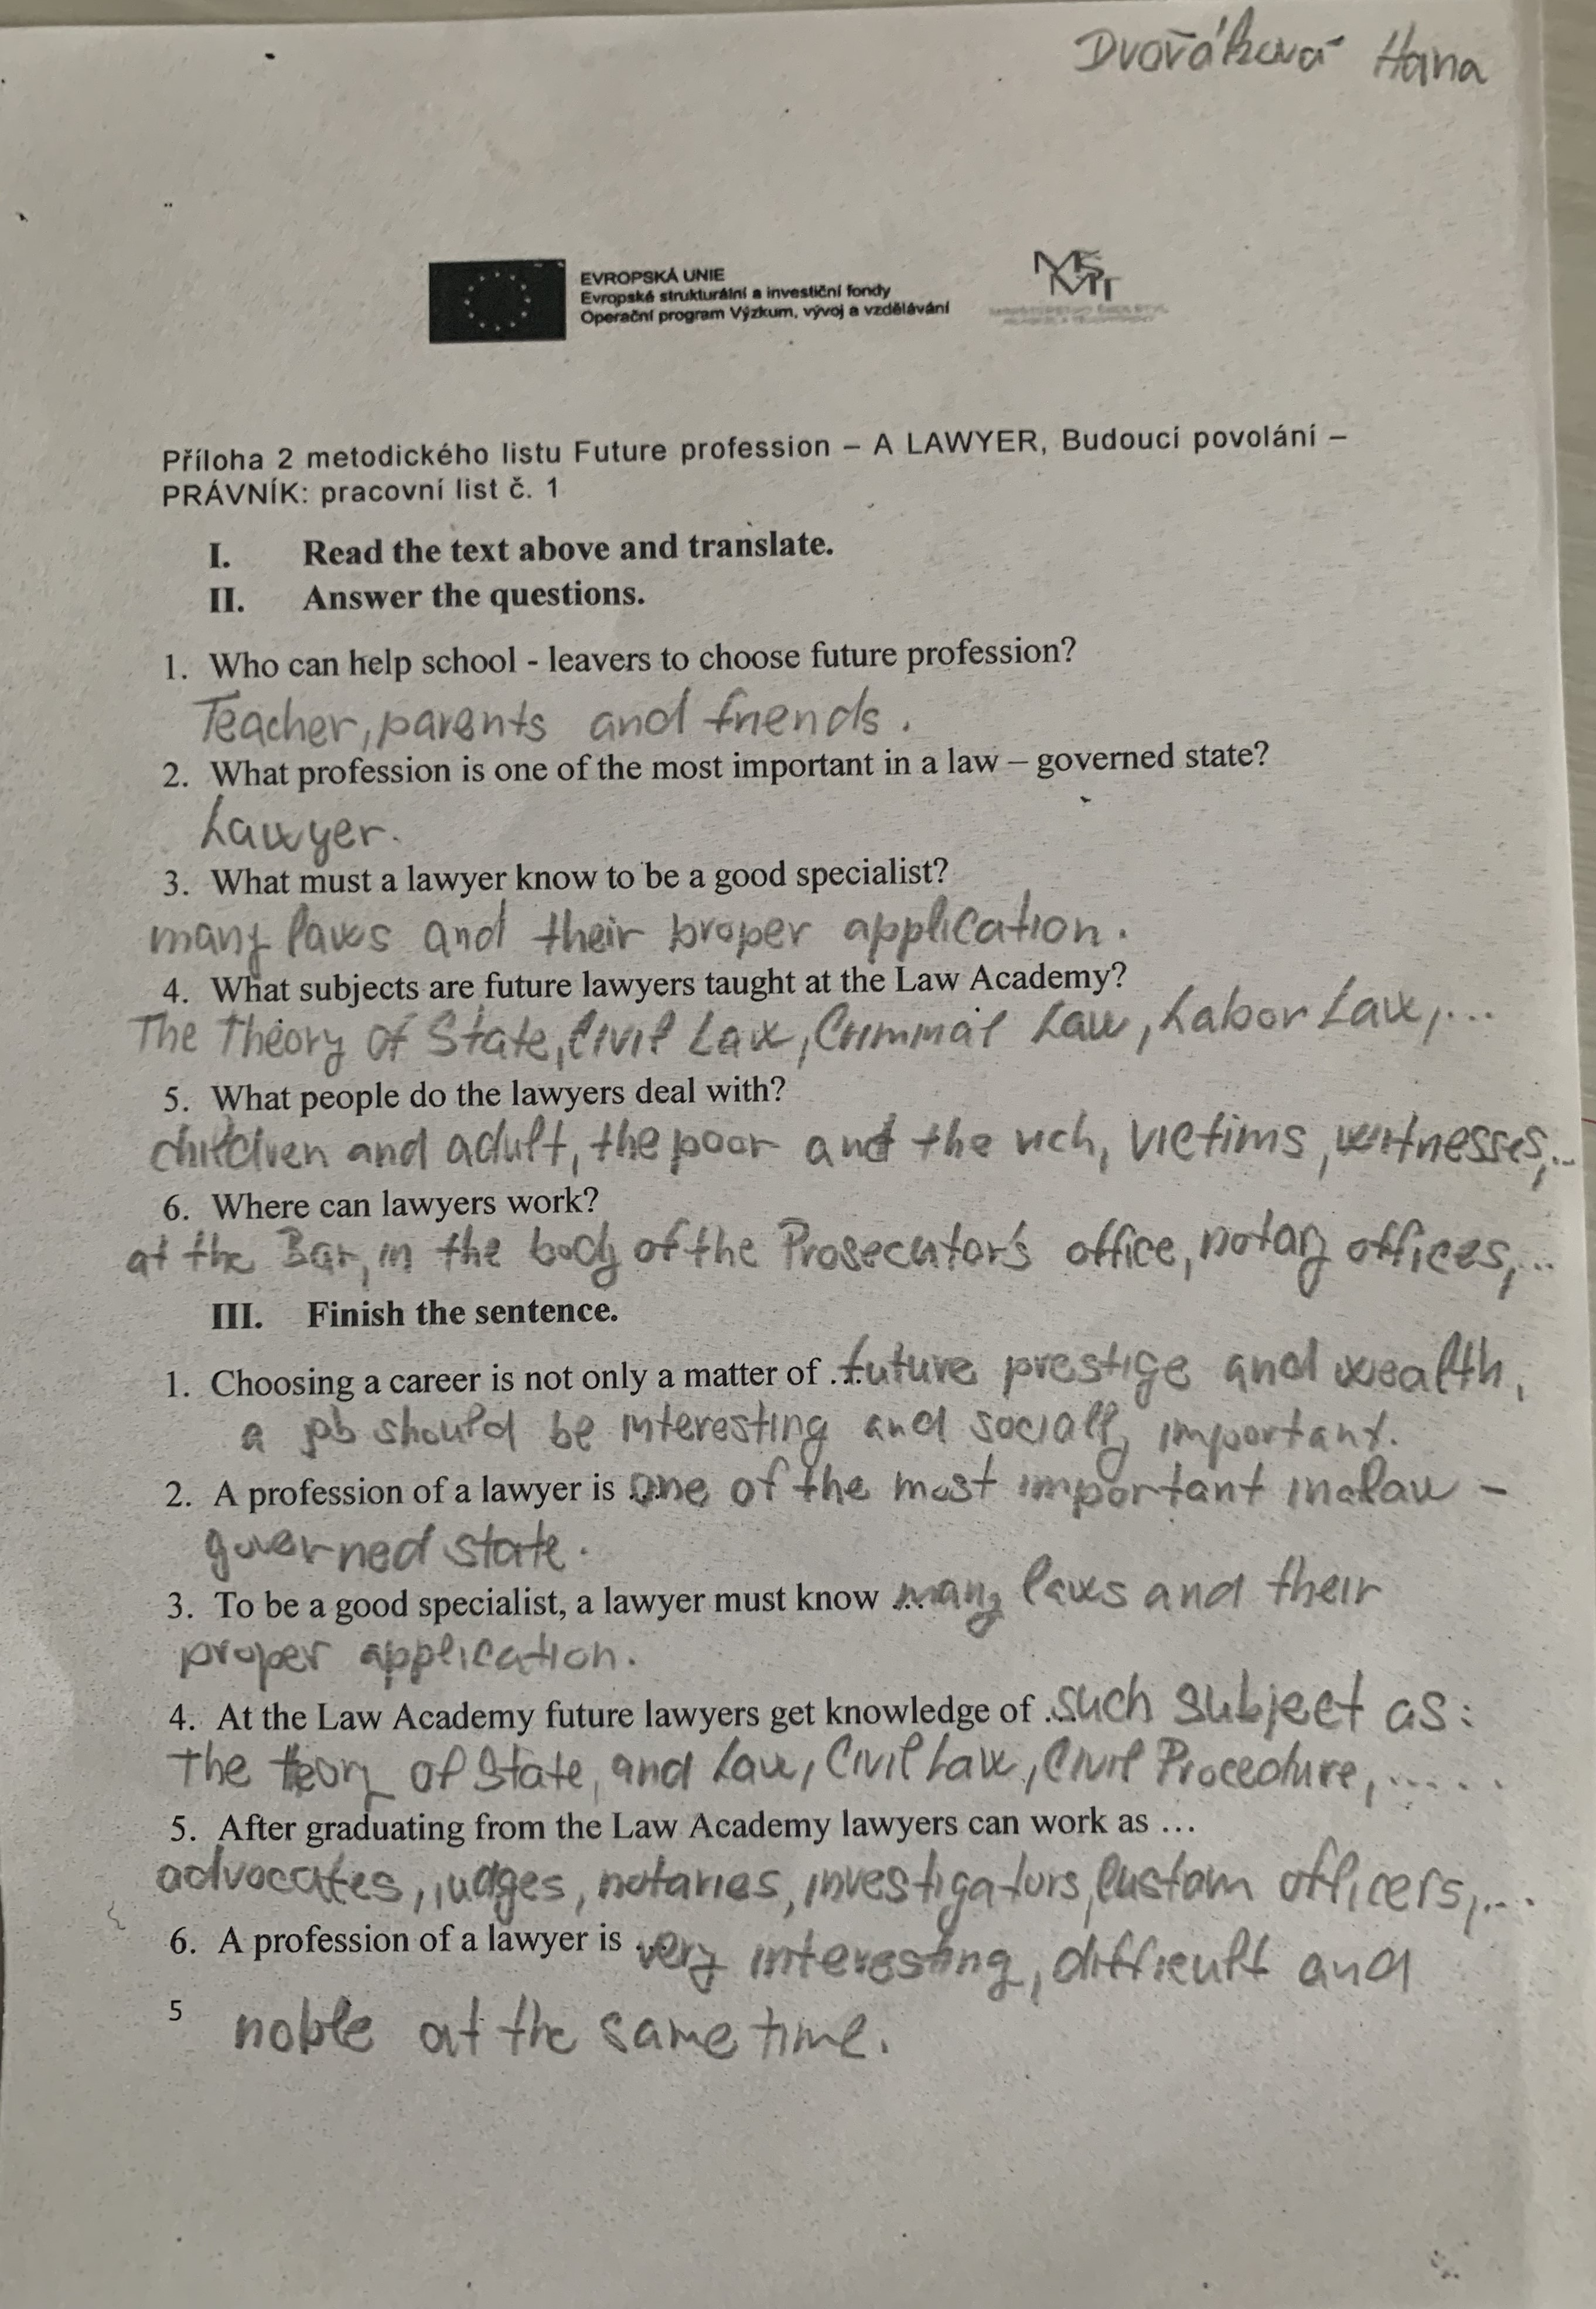 Dvořáková Hana
EVROPSKÁ UNIE
Evropské strukturální a investiční fondy
Operační program Výzkum, vývoj a vzdělávání
Příloha 2 metodického listu Future profession – A LAWYER, Budoucí povolání –
PRÁVNÍK: pracovní list č. 1
I. Read the text above and translate.
II. Answer the questions.
1. Who can help school - leavers to choose future profession?
Teacher, parents and friends.
2. What profession is one of the most important in a law – governed state?
Lawyer.
3. What must a lawyer know to be a good specialist?
many laws and their proper application.
4. What subjects are future lawyers taught at the Law Academy?
The Theory of State, Civil Law, Criminal Law, Labor Law, ...
5. What people do the lawyers deal with?
and adult, the poor and the rich, victims, witnesses, ...
6. Where can lawyers work?
at the Bar, in the body of the Prosecutor's office, notary offices, ...
III. Finish the sentence.
1. Choosing a career is not only a matter of ... future prestige and wealth,
a job should be interesting and socially important.
2. A profession of a lawyer is ... one of the most important in a law -
governed state.
3. To be a good specialist, a lawyer must know ... many laws and their
proper application.
4. At the Law Academy future lawyers get knowledge of ... such subject as:
The teory of State, and Law, Civil Law, Civil Procedure, .....
5. After graduating from the Law Academy lawyers can work as …
advocates, judges, notaries, investigators, custom officers, ...
6. A profession of a lawyer is ... very interesting, difficult and
5 noble at the same time.